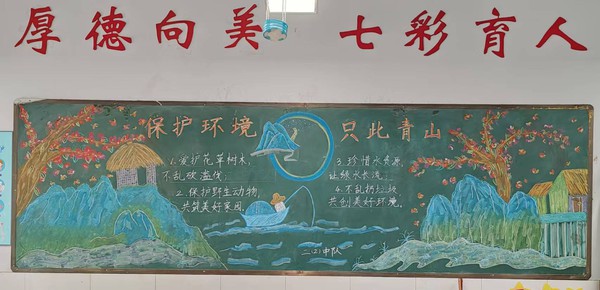 厚德向美 七彩育人
保护环境 只此青山
1.爱护花草树木,
不乱砍滥伐。
2.保护野生动物,
共筑美好家园。
3.珍惜水资源,
让绿水长流。
4.不乱扔垃圾,
共创美好环境。
二(2)中队